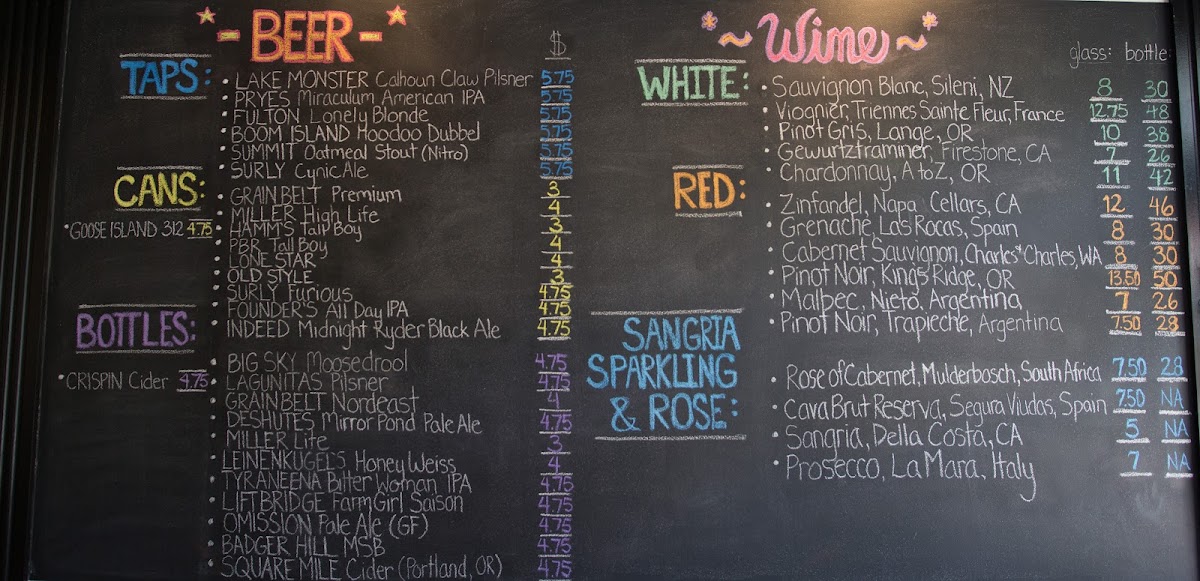 BEER
$
TAPS:
LAKE MONSTER Calhoun Claw Pilsner 5.75
PRYES Miraculum American IPA 5.75
FULTON Lonely Blonde 5.75
BOOM ISLAND Hoodoo Dubbel 5.75
SUMMIT Oatmeal Stout (Nitro) 5.75
SURLY Cynic Ale 5.75
CANS:
GRAIN BELT Premium 3
MILLER High Life 4
GOOSE ISLAND 312 4.75
HAMM'S Tall Boy 3
PBR Tall Boy 4
LONE STAR 4
OLD STYLE 3
SURLY Furious 4.75
FOUNDER'S All Day IPA 4.75
INDEED Midnight Ryder Black Ale 4.75
BOTTLES:
BIG SKY Moosedrool 4.75
CRISPIN Cider 4.75
LAGUNITAS Pilsner 4.75
GRAINBELT Nordeast 4
DESHUTES Mirror Pond Pale Ale 4.75
MILLER Lite 3
LEINENKUGELS Honey Weiss 4
TYRANEENA Bitter Woman IPA 4.75
LIFTBRIDGE Farm Girl Saison 4.75
OMISSION Pale Ale (GF) 4.75
BADGER HILL MSB 4.75
SQUARE MILE Cider (Portland, OR) 4.75
Wine
glass: bottle:
WHITE:
Sauvignon Blanc, Sileni, NZ 8 30
Viognier, Triennes Sainte Fleur, France 12.75 48
Pinot Gris, Lange, OR 10 38
Gewurtzframiner, Firestone, CA 7 26
Chardonnay, A to Z, OR 11 42
RED:
Zinfandel, Napa Cellars, CA 12 46
Grenache, Las Rocas, Spain 8 30
Cabernet Sauvignon, Charles & Charles, WA 8 30
Pinot Noir, Kings Ridge, OR 13.50 50
Malbec, Nieto, Argentina 7 26
Pinot Noir, Trapieche, Argentina 7.50 28
SANGRIA
SPARKLING
& ROSE:
Rose of Cabernet, Mulderbosch, South Africa 7.50 28
Cava Brut Reserva, Segura Viudas, Spain 7.50 NA
Sangria, Della Costa, CA 5 NA
Prosecco, La Mara, Italy 7 NA